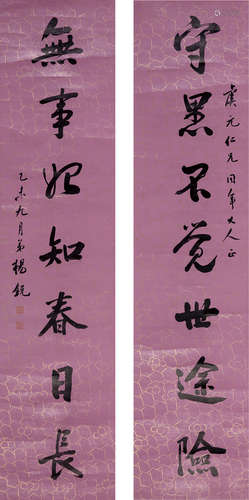 守黑不觉世途險
虞元仁兄同年大人正
無事始知春日長
乙未九月弟楊銳